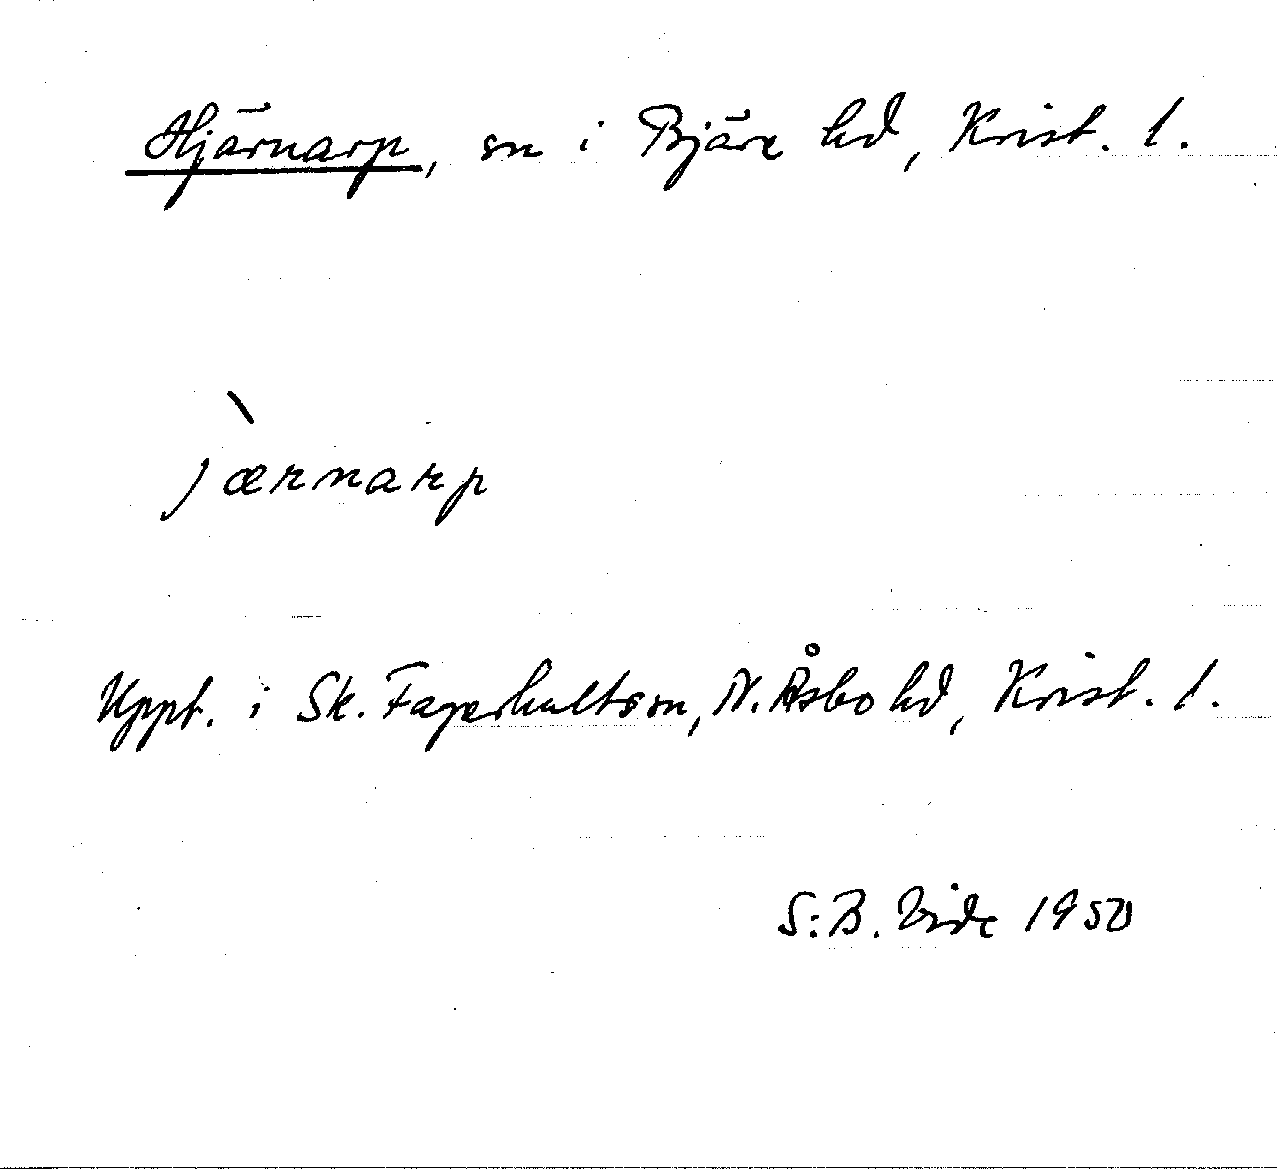 Hjärnarp, sn i Bjäre hd, Krist. l.
jæ̀rnarp
Uppt. i Sk. Fagerhultssn, N. Åsbo hd, Krist. l.
S:B. Vide 1950